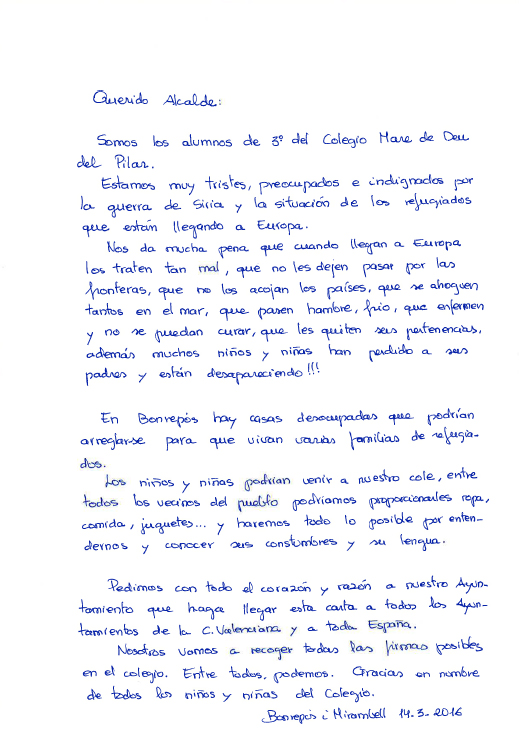 Querido Alcalde:
Somos los alumnos de 3º del Colegio Mare de Deu
del Pilar.
Estamos muy tristes, preocupados e indignados por
la guerra de Siria y la situación de los refugiados
que están llegando a Europa.
Nos da mucha pena que cuando llegan a Europa
los traten tan mal, que no les dejen pasar por las
fronteras, que no los acojan los países, que se ahoguen
tantos en el mar, que pasen hambre, frio, que enfermen
y no se puedan curar, que les quiten sus pertenencias,
además muchos niños y niñas han perdido a sus
padres y están desapareciendo!!!
En Bonrepòs hay casas desocupadas que podrían
arreglarse para que vivan varias familias de refugia-
dos.
Los niños y niñas podrían venir a nuestro cole, entre
todos los vecinos del pueblo podríamos proporcionarles ropa,
comida, juguetes... y haremos todo lo posible por enten-
dernos y conocer sus constumbres y su lengua.
Pedimos con todo el corazón y razón a nuestro Ayun-
tamiento que haga llegar esta carta a todos los Ayun-
tamientos de la C. Valenciana y a toda España.
Nosotros vamos a recoger todas las firmas posibles
en el colegio. Entre todos, podemos. Gracias en nombre
de todos los niños y niñas del Colegio.
Bonrepòs i Mirambell 14-3-2016